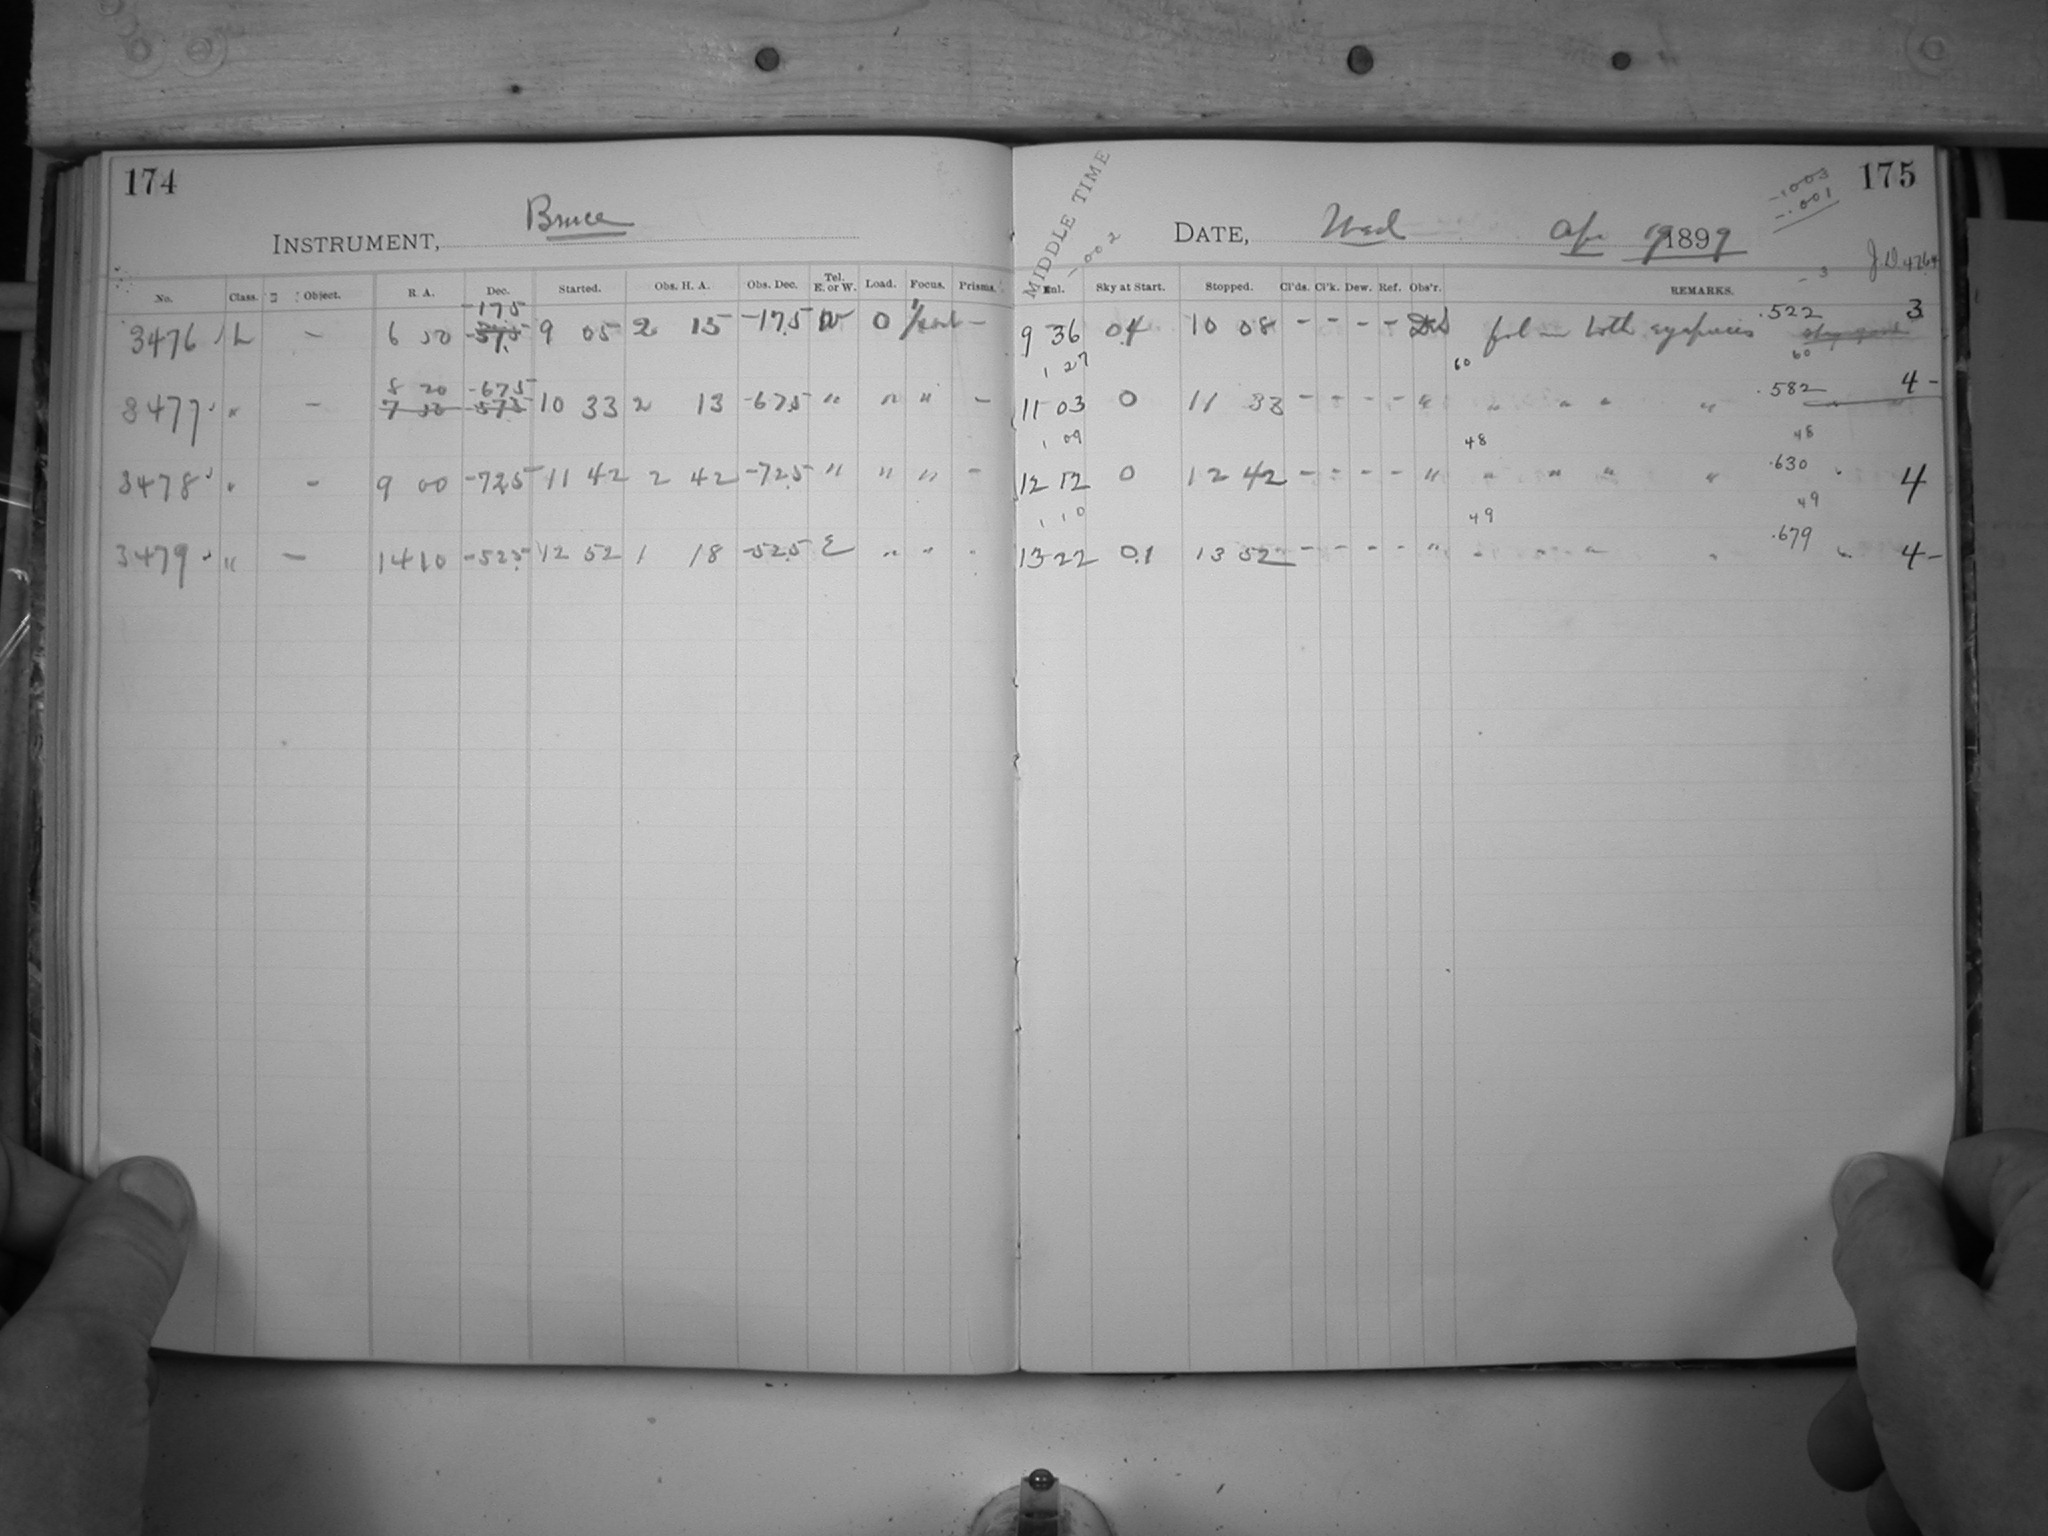 174
Bruce
INSTRUMENT,
No. Class. Object. R. A. Dec. Started. Obs. H. A. Obs. Dec. Tel. E. or W. Load. Focus. Prisms.
-17.5
3476 L - 6 50 9 05 2 15 -17.5 W 0 -
8 20 -67.5
3477 " - 7 50 -57.5 10 33 2 13 -67.5 " " " -
3478 " - 9 00 -72.5 11 42 2 42 -72.5 " " " -
3479 " - 14 10 -52.5 12 52 1 18 -52.5 E " " -
175
-.003
-.001
MIDDLE TIME
-.002
DATE, Wed Apr 19 1899
J.D. 4764
- 3
Enl. Sky at Start. Stopped. Cl'ds. Cl'k. Dew. Ref. Obs'r. REMARKS.
9 36 0.4 10 08 - - - - fol in both eyepieces .522 3
1 27 60 60
11 03 0 11 33 - - - - " " " " " .582 4-
1 09 48 48
12 12 0 12 42 - - - - " " " " " .630 " 4
1 10 49 49
13 22 0.1 13 52 - - - - " " " " " .679 " 4-